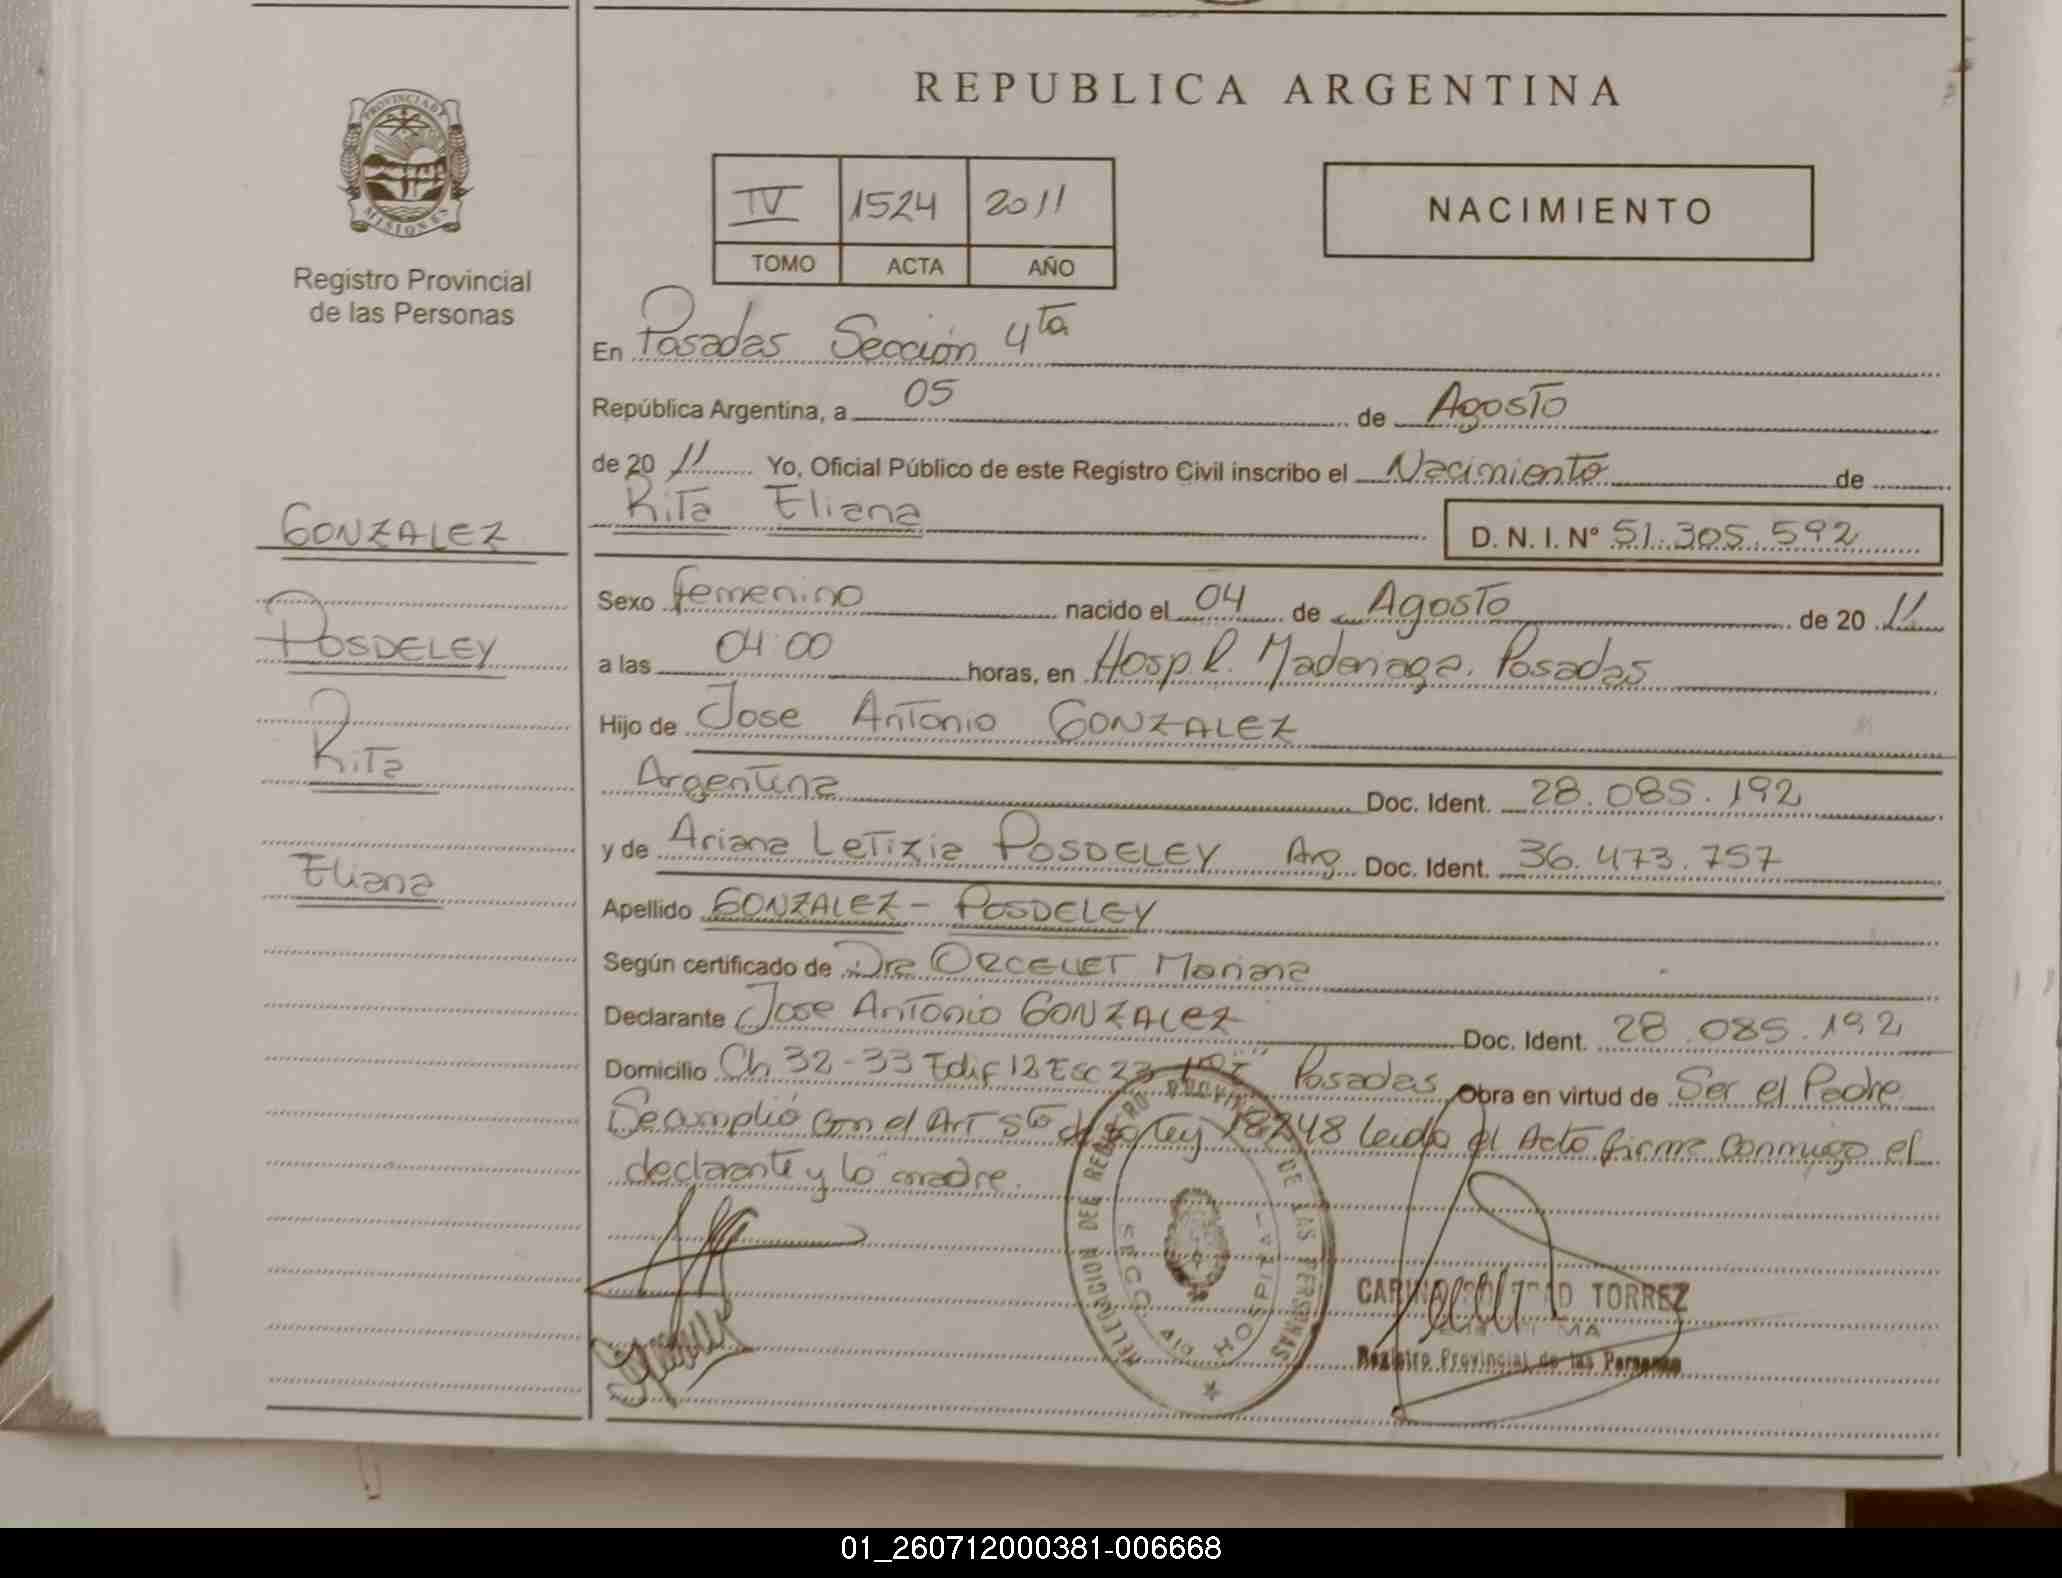 REPUBLICA ARGENTINA
PROVINCIA DE
MISIONES
Registro Provincial
de las Personas
IV 1524 2011
TOMO ACTA AÑO
NACIMIENTO
En Posadas Sección 4ta
República Argentina, a 05 de Agosto
de 20 11 Yo, Oficial Público de este Registro Civil inscribo el Nacimiento de
Rita Eliana
D. N. I. Nº 51.305.592
GONZALEZ
POSDELEY
Rita
Eliana
Sexo femenino nacido el 04 de Agosto de 20 11
a las 04:00 horas, en Hosp R. Madariaga. Posadas
Hijo de Jose Antonio GONZALEZ
Argentina Doc. Ident. 28.085.192
y de Ariana Letizia POSDELEY Arg. Doc. Ident. 36.473.757
Apellido GONZALEZ - POSDELEY
Según certificado de Dra ORCELLET Mariana
Declarante Jose Antonio GONZALEZ Doc. Ident. 28.085.192
Domicilio Ch 32-33 Edif 12 Esc 23 Posadas Obra en virtud de Ser el Padre
Se cumplió con el Art 5to de la ley 18248 leida el Acta firma conmigo el
declarante y la madre.
DELEGACION DEL REGISTRO PROVINCIAL DE LAS PERSONAS
SECC. HOSPITAL
TORREZ
Registro Provincial de las Personas
01_260712000381-006668